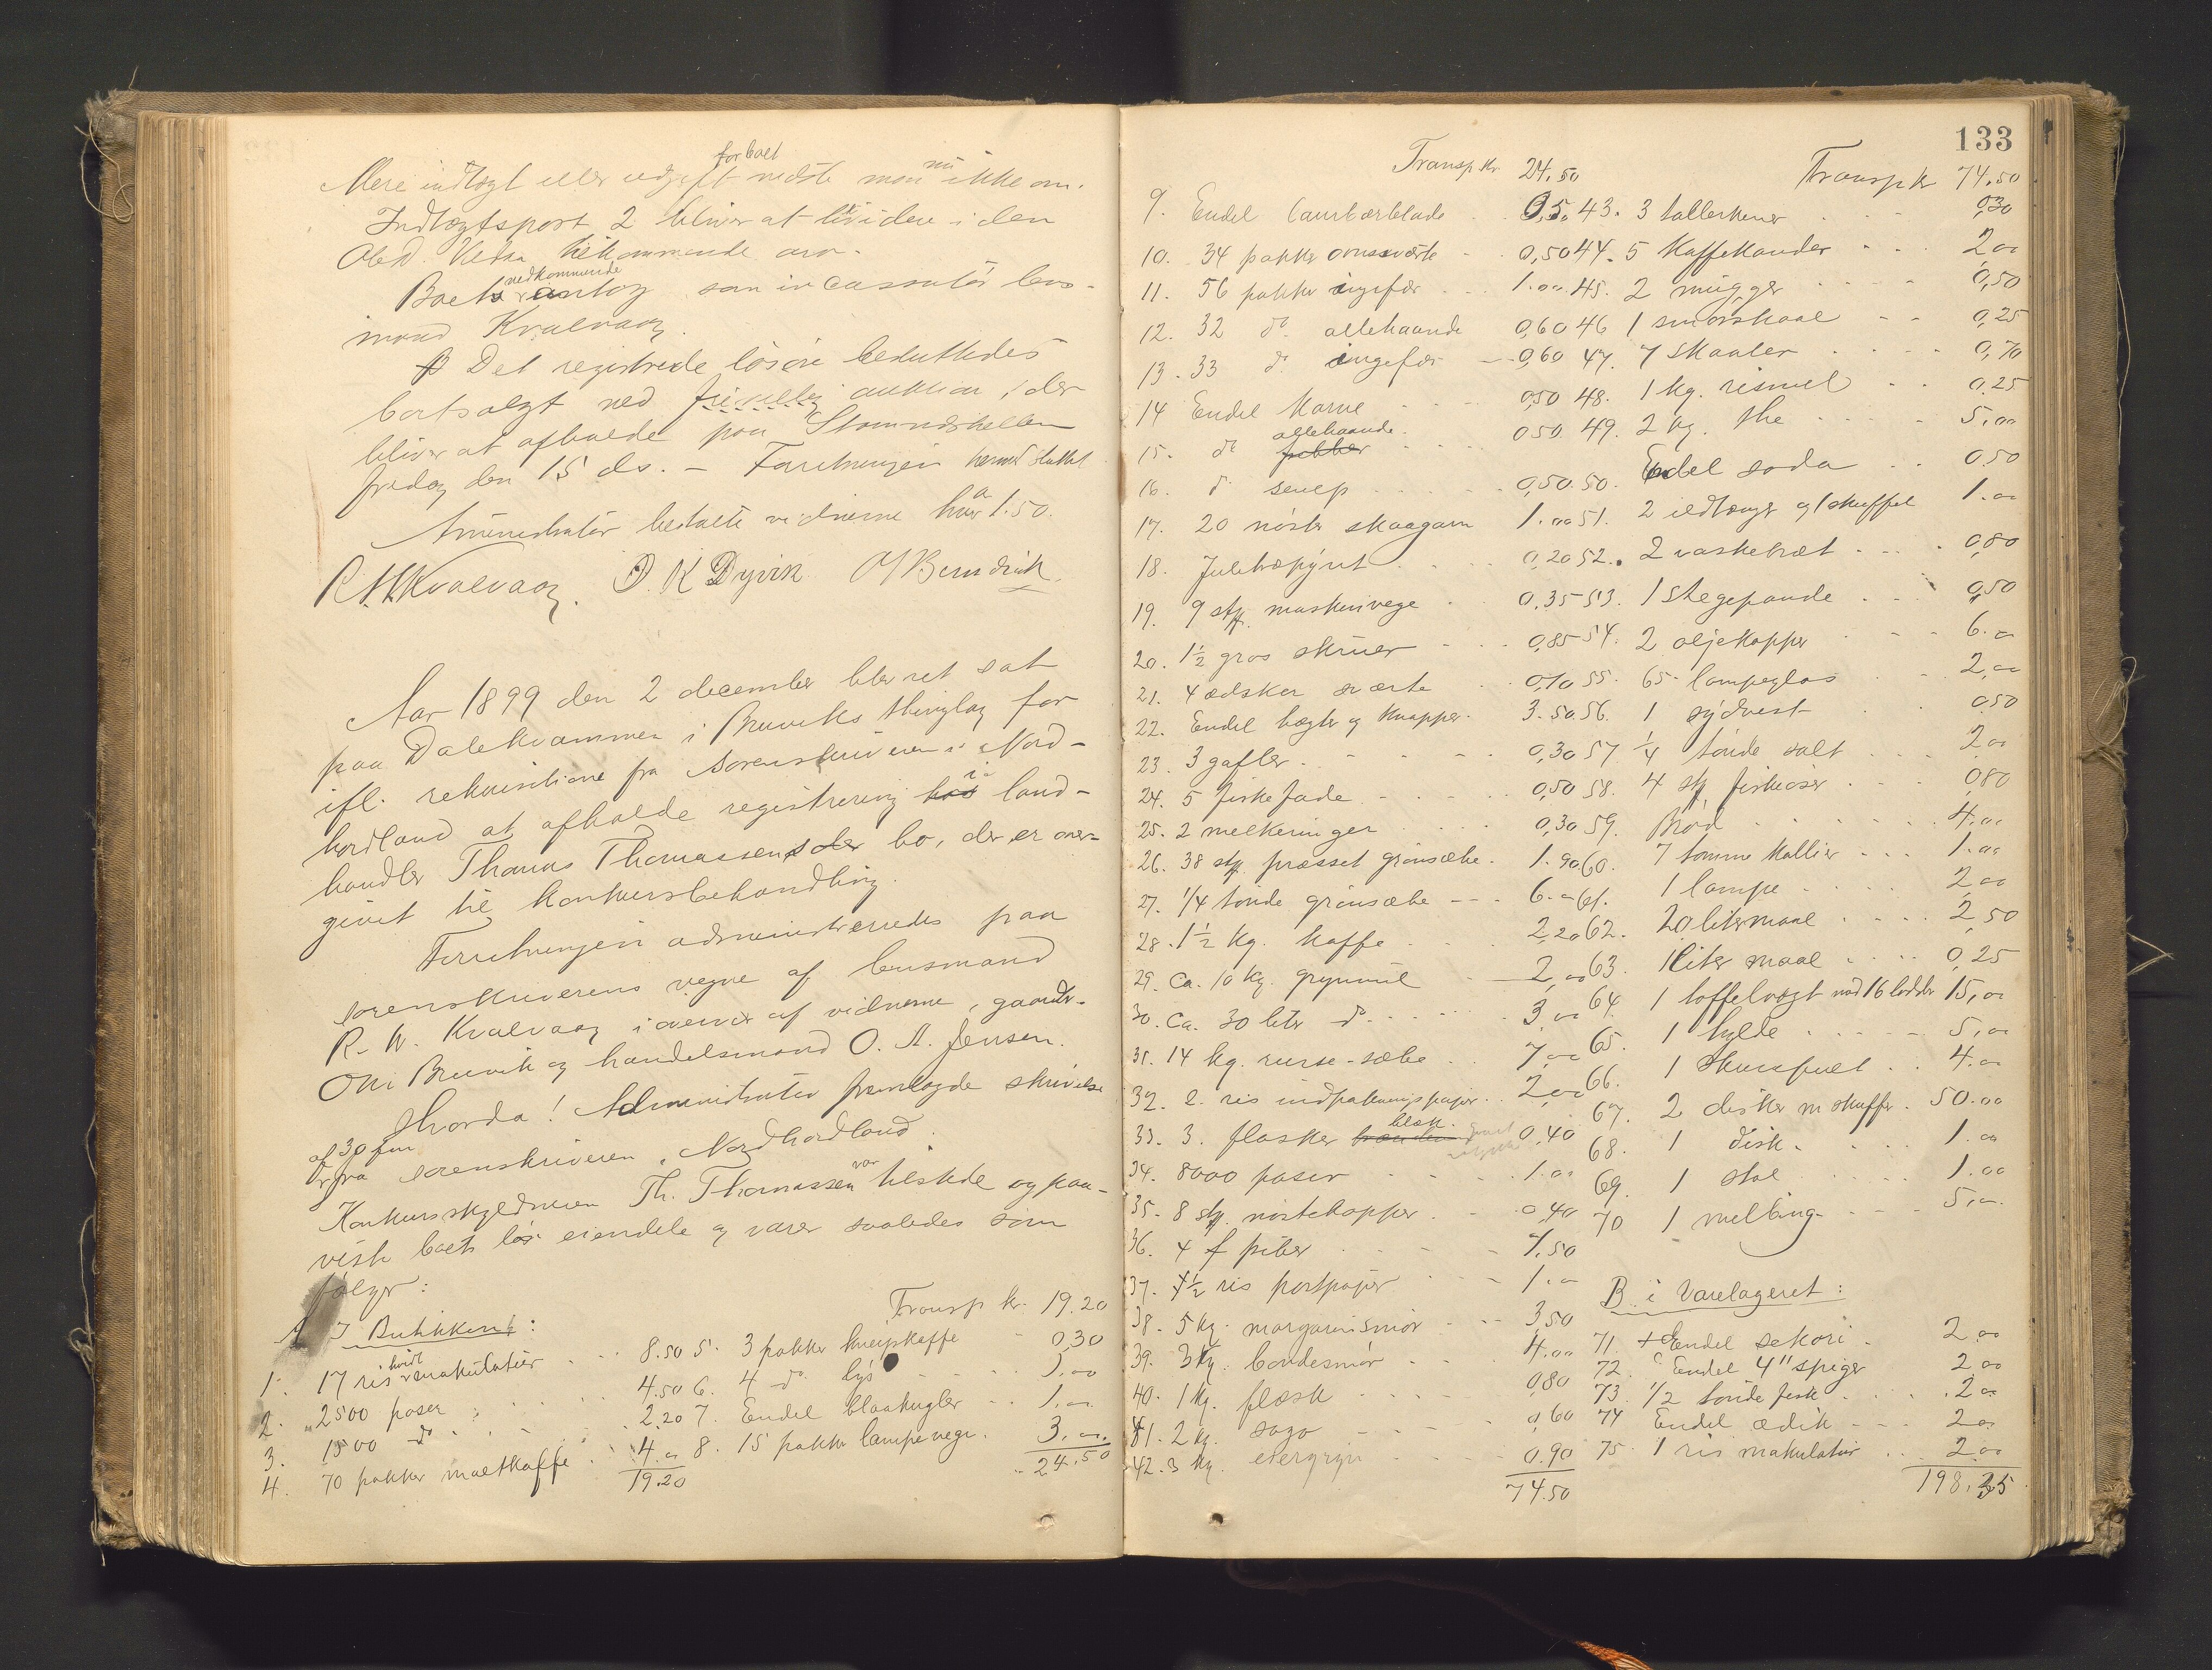 Mere indtægt eller udgift for boet vidste man nu ikke om.
Indtægtspost 2 bliver at
Boet vedkommende antog som incassatör lens-
mand Kvalvaag.
Det registrerede lösöre besluttedes
bortsolgt ved frivillig auktion, der
bliver at afholde paa Stamneshellen
fredag den 15 ds. - Forretningen hermed sluttet
Administrator betalte vidnerne hver a 1.50.
R. W. Kvalvaag. O. K Dyvik
Aar 1899 den 2 december blev ret sat
paa Dalekvammen i Bruviks thinglag for
ifl. rekvisitione fra sorenskriveren i Nord-
hordland at afholde registrering i land-
handler Thomas Thomassens bo, der er over-
givet til konkursbehandling.
Forretningen administreredes paa
sorenskriverens vegne af lensmand
R. W. Kvalvaag i overvær af vidnerne, gaardbr.
Ole Bruvik og handelsmand O. A. Jensen.
Hvorda! Administrator fremlagde skrivelse
af 30 f.m.
fra sorenskriveren i Nordhordland.
Konkursskyldneren Th. Thomassen var tilstede og paa-
viste boets lös eiendele og varer saaledes som
fölger:
A I Butikken:
1. 17 ris hvidt makulatur 8.50
2. 2500 poser 4.50
3. 1500 do 2.20
4. 70 pakker maltkaffe 4.00
19.20
Transp kr. 19.20
5. 3 pakker kneipkaffe 0,30
6. 4 do lys 1.00
7. Endel blaakugler 1.00
8. 15 pakker lampevege 3.00
24.50
133
Transp kr 24.50
9. Endel laurbærblade 0,50
10. 34 pakker ovnsværte 0,50
11. 56 pakker ingefær 1.00
12. 32 do allehaande 0,60
13. 33 do ingefær 0,60
14 Endel Karve 0,50
15. do allehaande 0,50
16. do senep 0,50
17. 20 nöster skaagarn 1.00
18. Juletræpynt 0,20
19. 9 stk. maskinvege 0,35
20. 1½ gros skruer 0,85
21. 4 ædsker sværte 0,70
22. Endel hægter og knapper 3.50
23. 3 gafler 0,30
24. 5 fiskefade 0,50
25. 2 melkeringer 0,30
26. 38 stk. presset grönsæbe 1.90
27. 1/4 tönde grönsæbe 6.00
28. 1½ kg. kaffe 2,20
29. ca. 10 kg. grynmel 2,00
30. ca. 30 liter do 3,00
31. 14 kg. russe-sæbe 7,00
32. 2 ris indpakningspapir 2,00
33. 3 flasker blæk 0,40
34. 8000 poser 1.00
35. 8 stk. nöstekopper 0,40
36. 4 f piber 1.50
37. 1½ ris postpapir 1.00
38. 5 kg. margarinsmör 3,50
39. 3 kg. bondesmör 4.00
40. 1 kg. flæsk 0,80
41. 2 kg. sago 0,60
42. 3 kg. erter gryn 0.90
74.50
Transp kr 74.50
43. 3 tallerkener 0,30
44. 5 Kaffekander 2,00
45. 2 mugger 0,50
46 1 smörskaal 0,25
47. 7 skaaler 0,70
48. 1 kg. rismel 0,25
49. 2 kg. the 5,00
50. Endel soda 0,50
51. 2 ildtænger og 1 skuffel 1.00
52. 2 vaskebræt 0,80
53. 1 Stegepande 0,50
54. 2 oljekopper 6.00
55. 65 lampeglas 2,00
56. 1 sydvest 0,50
57 1/4 tönde salt 2,00
58. 4 stk fiskeöser 0,80
59. Bröd 4.00
60. 7 tomme kallier 1.00
61. 1 lampe 2,00
62. 20 litermaal 2,50
63. 1 liter maal 0,25
64. 1 taffelvægt med 16 lodder 15,00
65. 1 hylde 5,00
66. 1 Skrivepult 4.00
67. 2 disker m skuffer 50.00
68. 1 disk 1.00
69. 1 stol 1.00
70 1 melbing 5,00
B. i Varelageret:
71. Endel sekori 2,00
72. Endel 4" spiger 2,00
73. 1/2 tönde fisk 2,00
74 Endel ædik 2,00
75. 1 ris makulatur 2,00
198.35